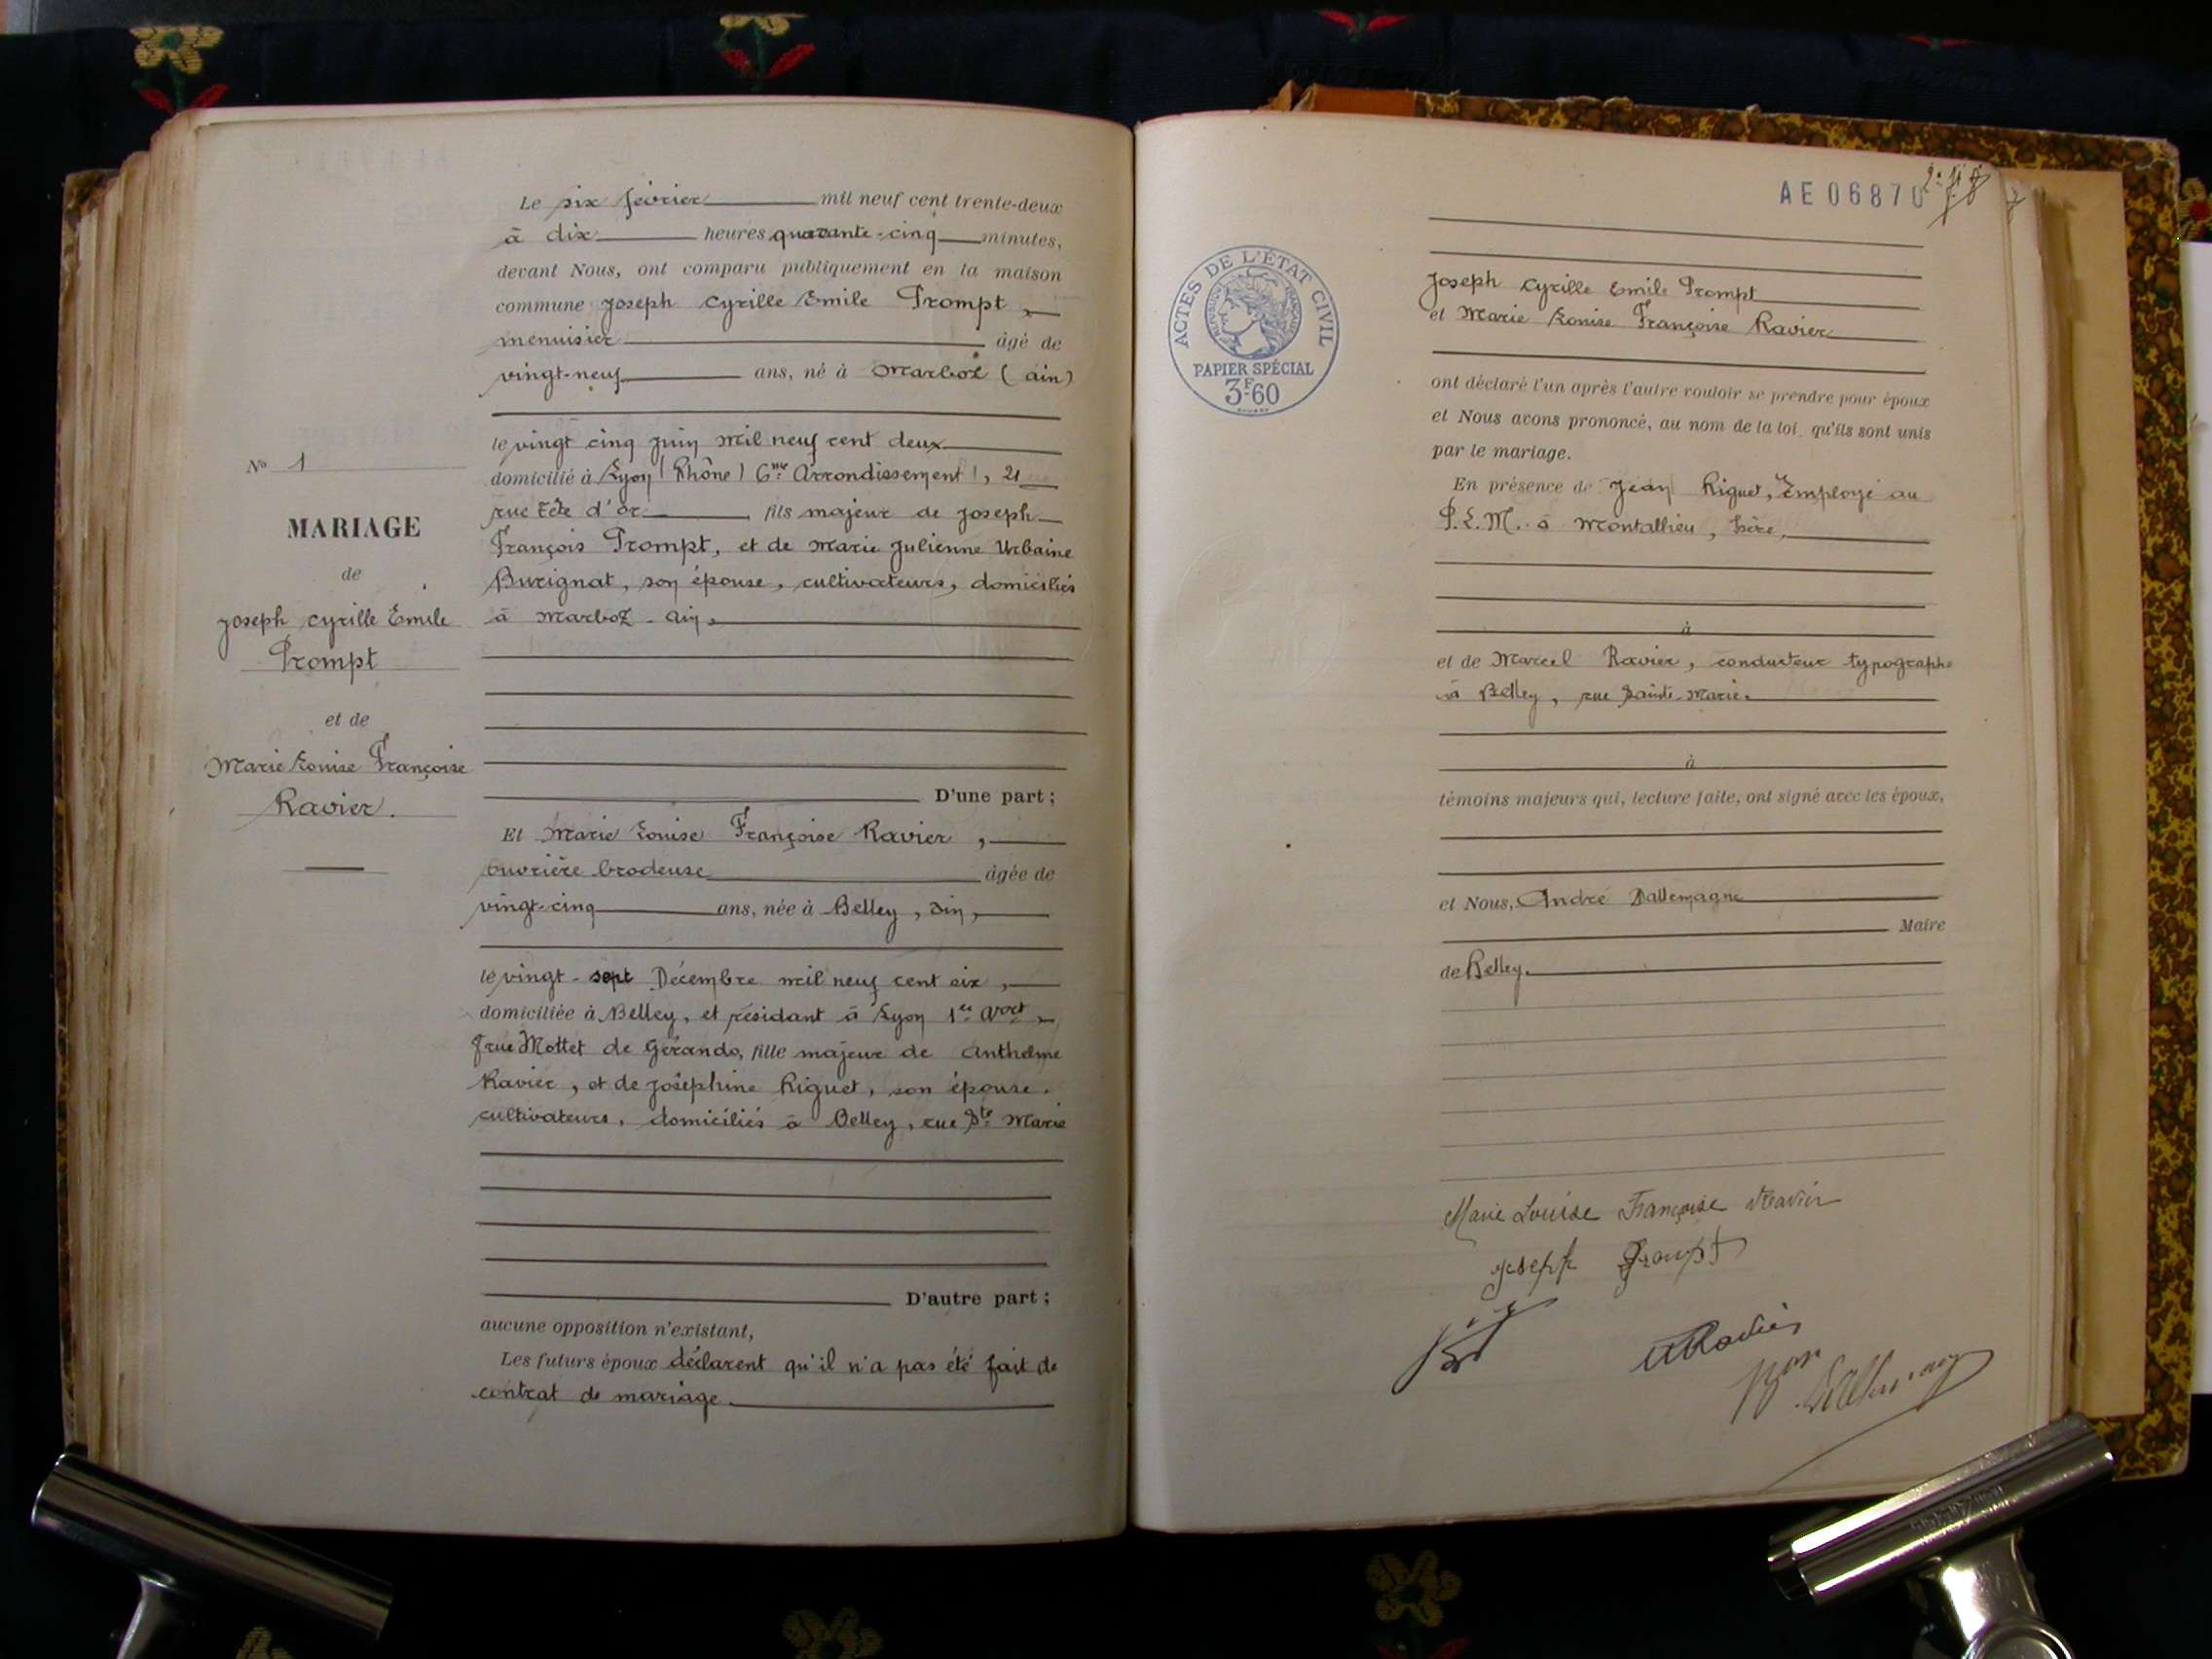 Le six février mil neuf cent trente-deux
à dix heures quarante-cinq minutes,
devant Nous, ont comparu publiquement en la maison
commune Joseph Cyrille Emile Prompt,
menuisier âgé de
vingt-neuf ans, né à Marboz (Ain)
le vingt cinq Juin mil neuf cent deux
domicilié à Lyon (Rhône) 6me Arrondissement, 21
rue Tête d'or fils majeur de Joseph
François Prompt, et de Marie Julienne Urbaine
Burignat, son épouse, cultivateurs, domiciliés
à Marboz - Ain.
D'une part;
Et Marie Louise Françoise Ravier,
ouvrière brodeuse âgée de
vingt-cinq ans, née à Belley, Ain,
le vingt-sept Décembre mil neuf cent six,
domiciliée à Belley, et résidant à Lyon 1er Arrt,
rue Mottet de Gérando, fille majeur de Anthelme
Ravier, et de Joséphine Riguet, son épouse.
cultivateurs, domiciliés à Belley, rue Ste Marie
D'autre part;
aucune opposition n'existant,
Les futurs époux déclarent qu'il n'a pas été fait de
contrat de mariage
No 1
MARIAGE
de
Joseph Cyrille Emile
Prompt
et de
Marie Louise Françoise
Ravier.
AE 06870
ACTES DE L'ÉTAT CIVIL
RÉPUBLIQUE FRANÇAISE
PAPIER SPÉCIAL
3F60
Joseph Cyrille Emile Prompt
et Marie Louise Françoise Ravier
ont déclaré l'un après l'autre vouloir se prendre pour époux
et Nous avons prononcé, au nom de la loi, qu'ils sont unis
par le mariage.
En présence de Jean Riguet, Employé au
P.L.M. à Montallieu, Isère,
à
et de Marcel Ravier, conducteur typographe
à Belley, rue Sainte-Marie.
à
témoins majeurs qui, lecture faite, ont signé avec les époux,
et Nous, André Dallemagne
Maire
de Belley.
Marie Louise Françoise Ravier
Joseph Prompt
Ravier
Bon Dallemagne